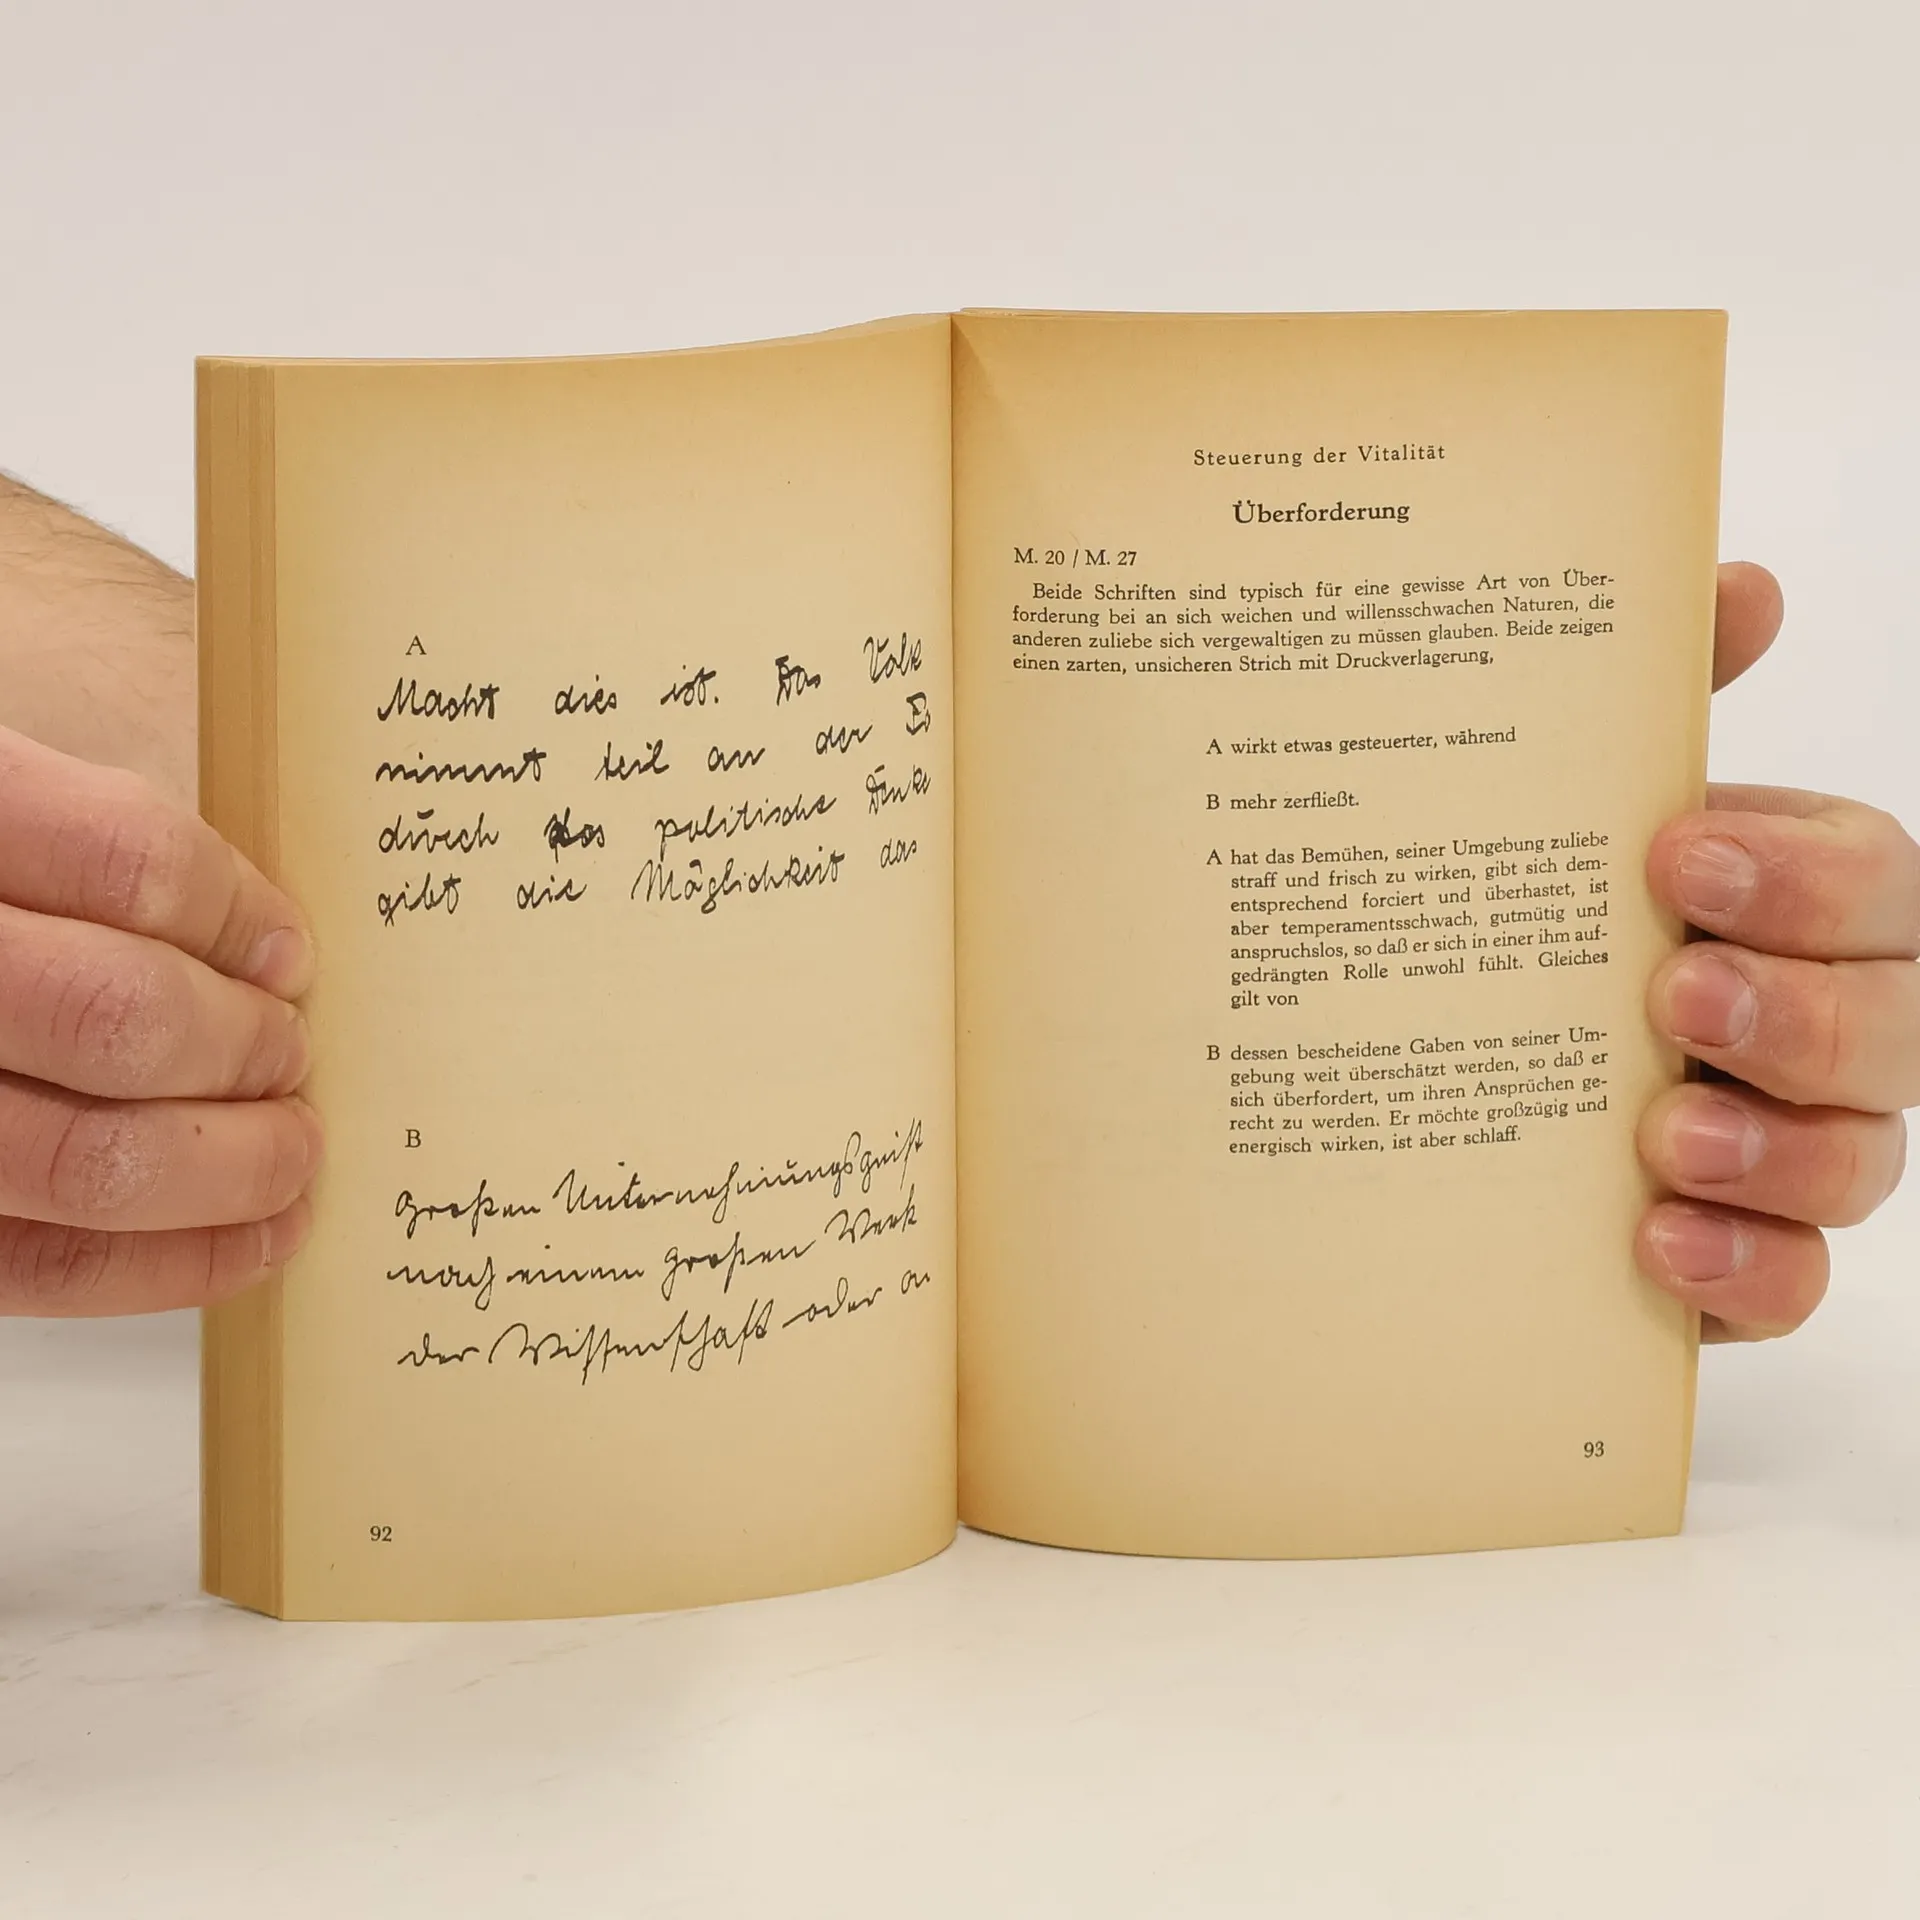 A
Macht dies ist. Das Volk
nimmt teil an der Es
durch das politische Denke
gibt die Möglichkeit das
B
großen Unternehmungsgeist
nach einem großen Werk
der Wissenschaft oder an
92
Steuerung der Vitalität
Überforderung
M. 20 / M. 27
Beide Schriften sind typisch für eine gewisse Art von Über-
forderung bei an sich weichen und willensschwachen Naturen, die
anderen zuliebe sich vergewaltigen zu müssen glauben. Beide zeigen
einen zarten, unsicheren Strich mit Druckverlagerung,
A wirkt etwas gesteuerter, während
B mehr zerfließt.
A hat das Bemühen, seiner Umgebung zuliebe
straff und frisch zu wirken, gibt sich dem-
entsprechend forciert und überhastet, ist
aber temperamentsschwach, gutmütig und
anspruchslos, so daß er sich in einer ihm auf-
gedrängten Rolle unwohl fühlt. Gleiches
gilt von
B dessen bescheidene Gaben von seiner Um-
gebung weit überschätzt werden, so daß er
sich überfordert, um ihren Ansprüchen ge-
recht zu werden. Er möchte großzügig und
energisch wirken, ist aber schlaff.
93